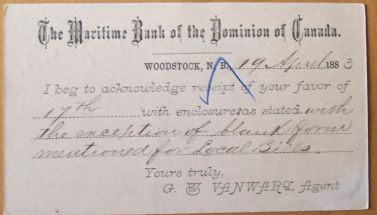 The Maritime Bank of the Dominion of Canada.
WOODSTOCK, N. B. 19 April 1883
I beg to acknowledge receipt of your favor of
17th with enclosures as stated with
the exception of blank form
mentioned for Local Bills
Yours truly,
G. W. VANWART, Agent